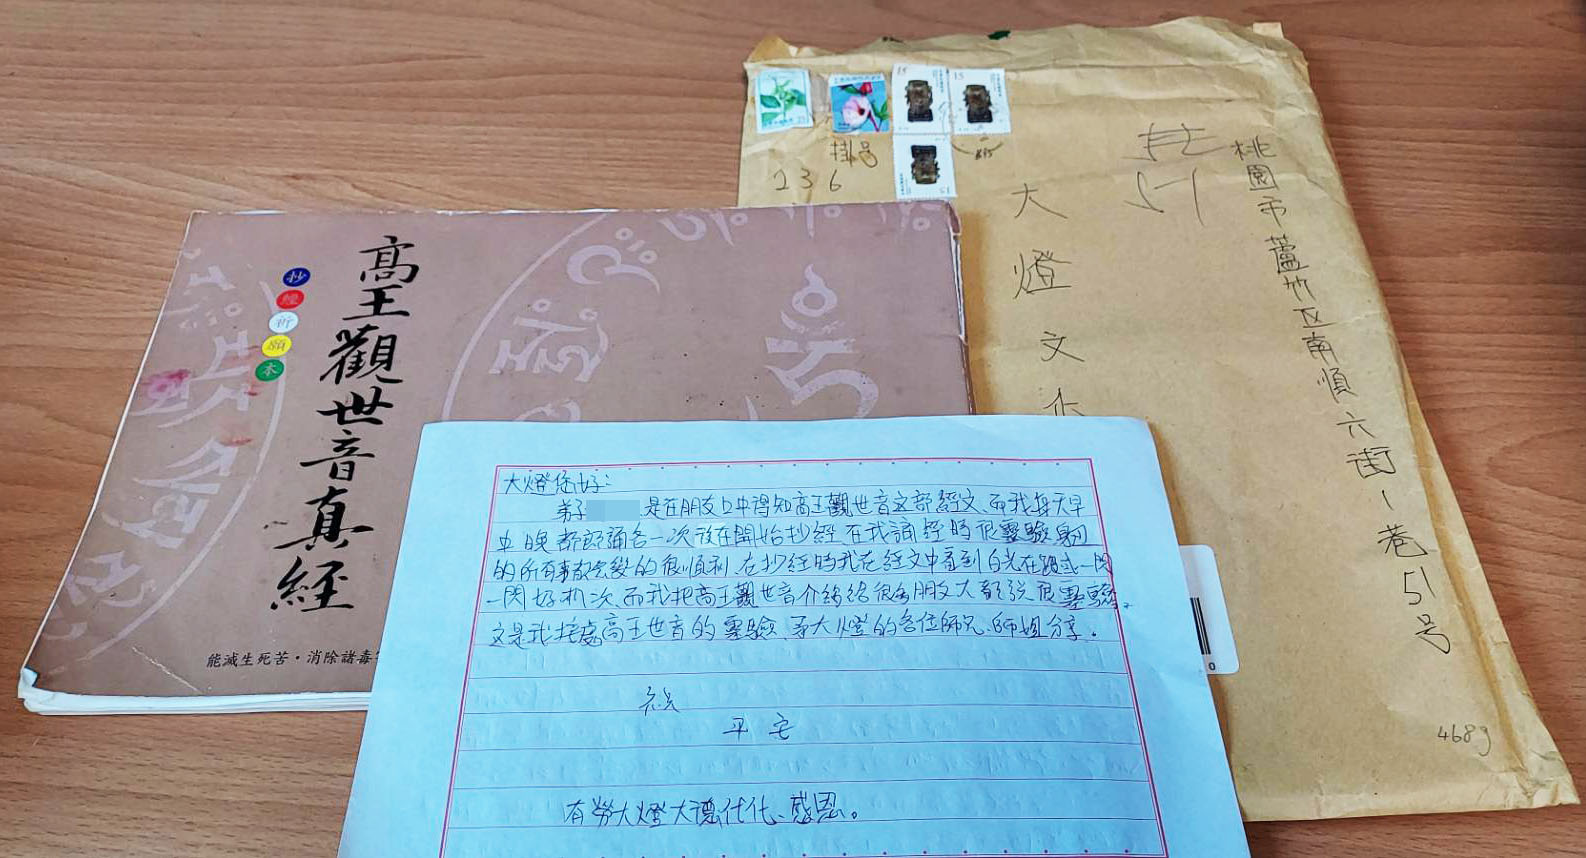 高王觀世音真經
抄經祈願本
能滅生死苦・消除諸毒
15
15
15
掛号
236
桃園市蘆竹区南順六街1巷51号
大燈文化
468g
大燈您好:
弟子 是在朋友口中得知高王觀世音这部經文、而我每天早
中晚都郎誦各一次 在開始抄經 在我誦經時很靈驗
的所有事 的很順利、在抄經時我在經文中看到白光在 一閃
一閃好 次、而我把高王觀世音介紹給很多朋友大 說很靈驗。
这是我接 高王世音的靈驗、 大燈的各位師兄、師姐分享。
祝
平安
有勞大燈大德代化、感恩。